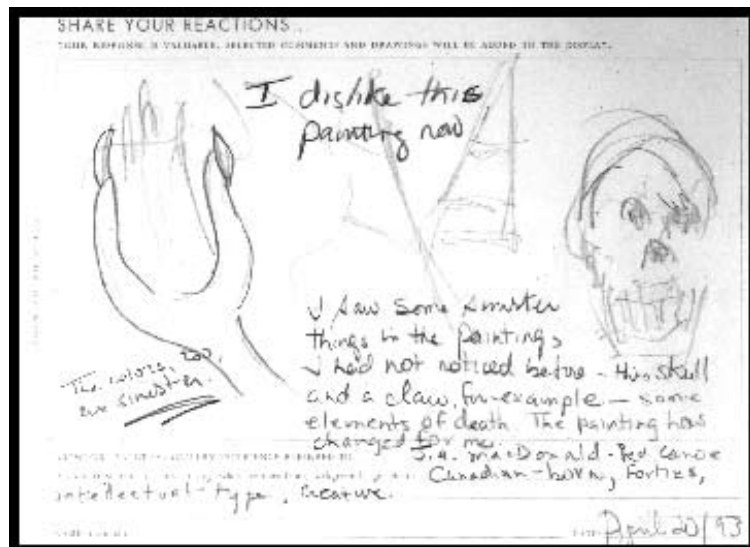 SHARE YOUR REACTIONS...
YOUR RESPONSE IS VALUABLE. SELECTED COMMENTS AND DRAWINGS WILL BE ADDED TO THE DISPLAY.
I dislike this
painting now
I saw some sinister
things in the paintings
I had not noticed before - this skull
and a claw, for example - some
elements of death. The painting has
changed for me.
The colors, too,
are sinister.
J.A. MacDonald - Red Canoe
Canadian-born, Forties,
intellectual-type, creative.
April 20/93